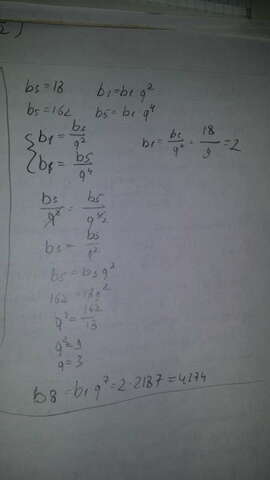 2)
b3=18 b3=b1·q²
b5=162 b5=b1·q⁴
b1=b3/q²
b1=b5/q⁴ b1=b3/q²=18/9=2
b3/q²=b5/q⁴
b3=b5/q²
b5=b3q²
162=18q²
q²=162/18
q²=9
q=3
b8=b1q⁷=2·2187=4374